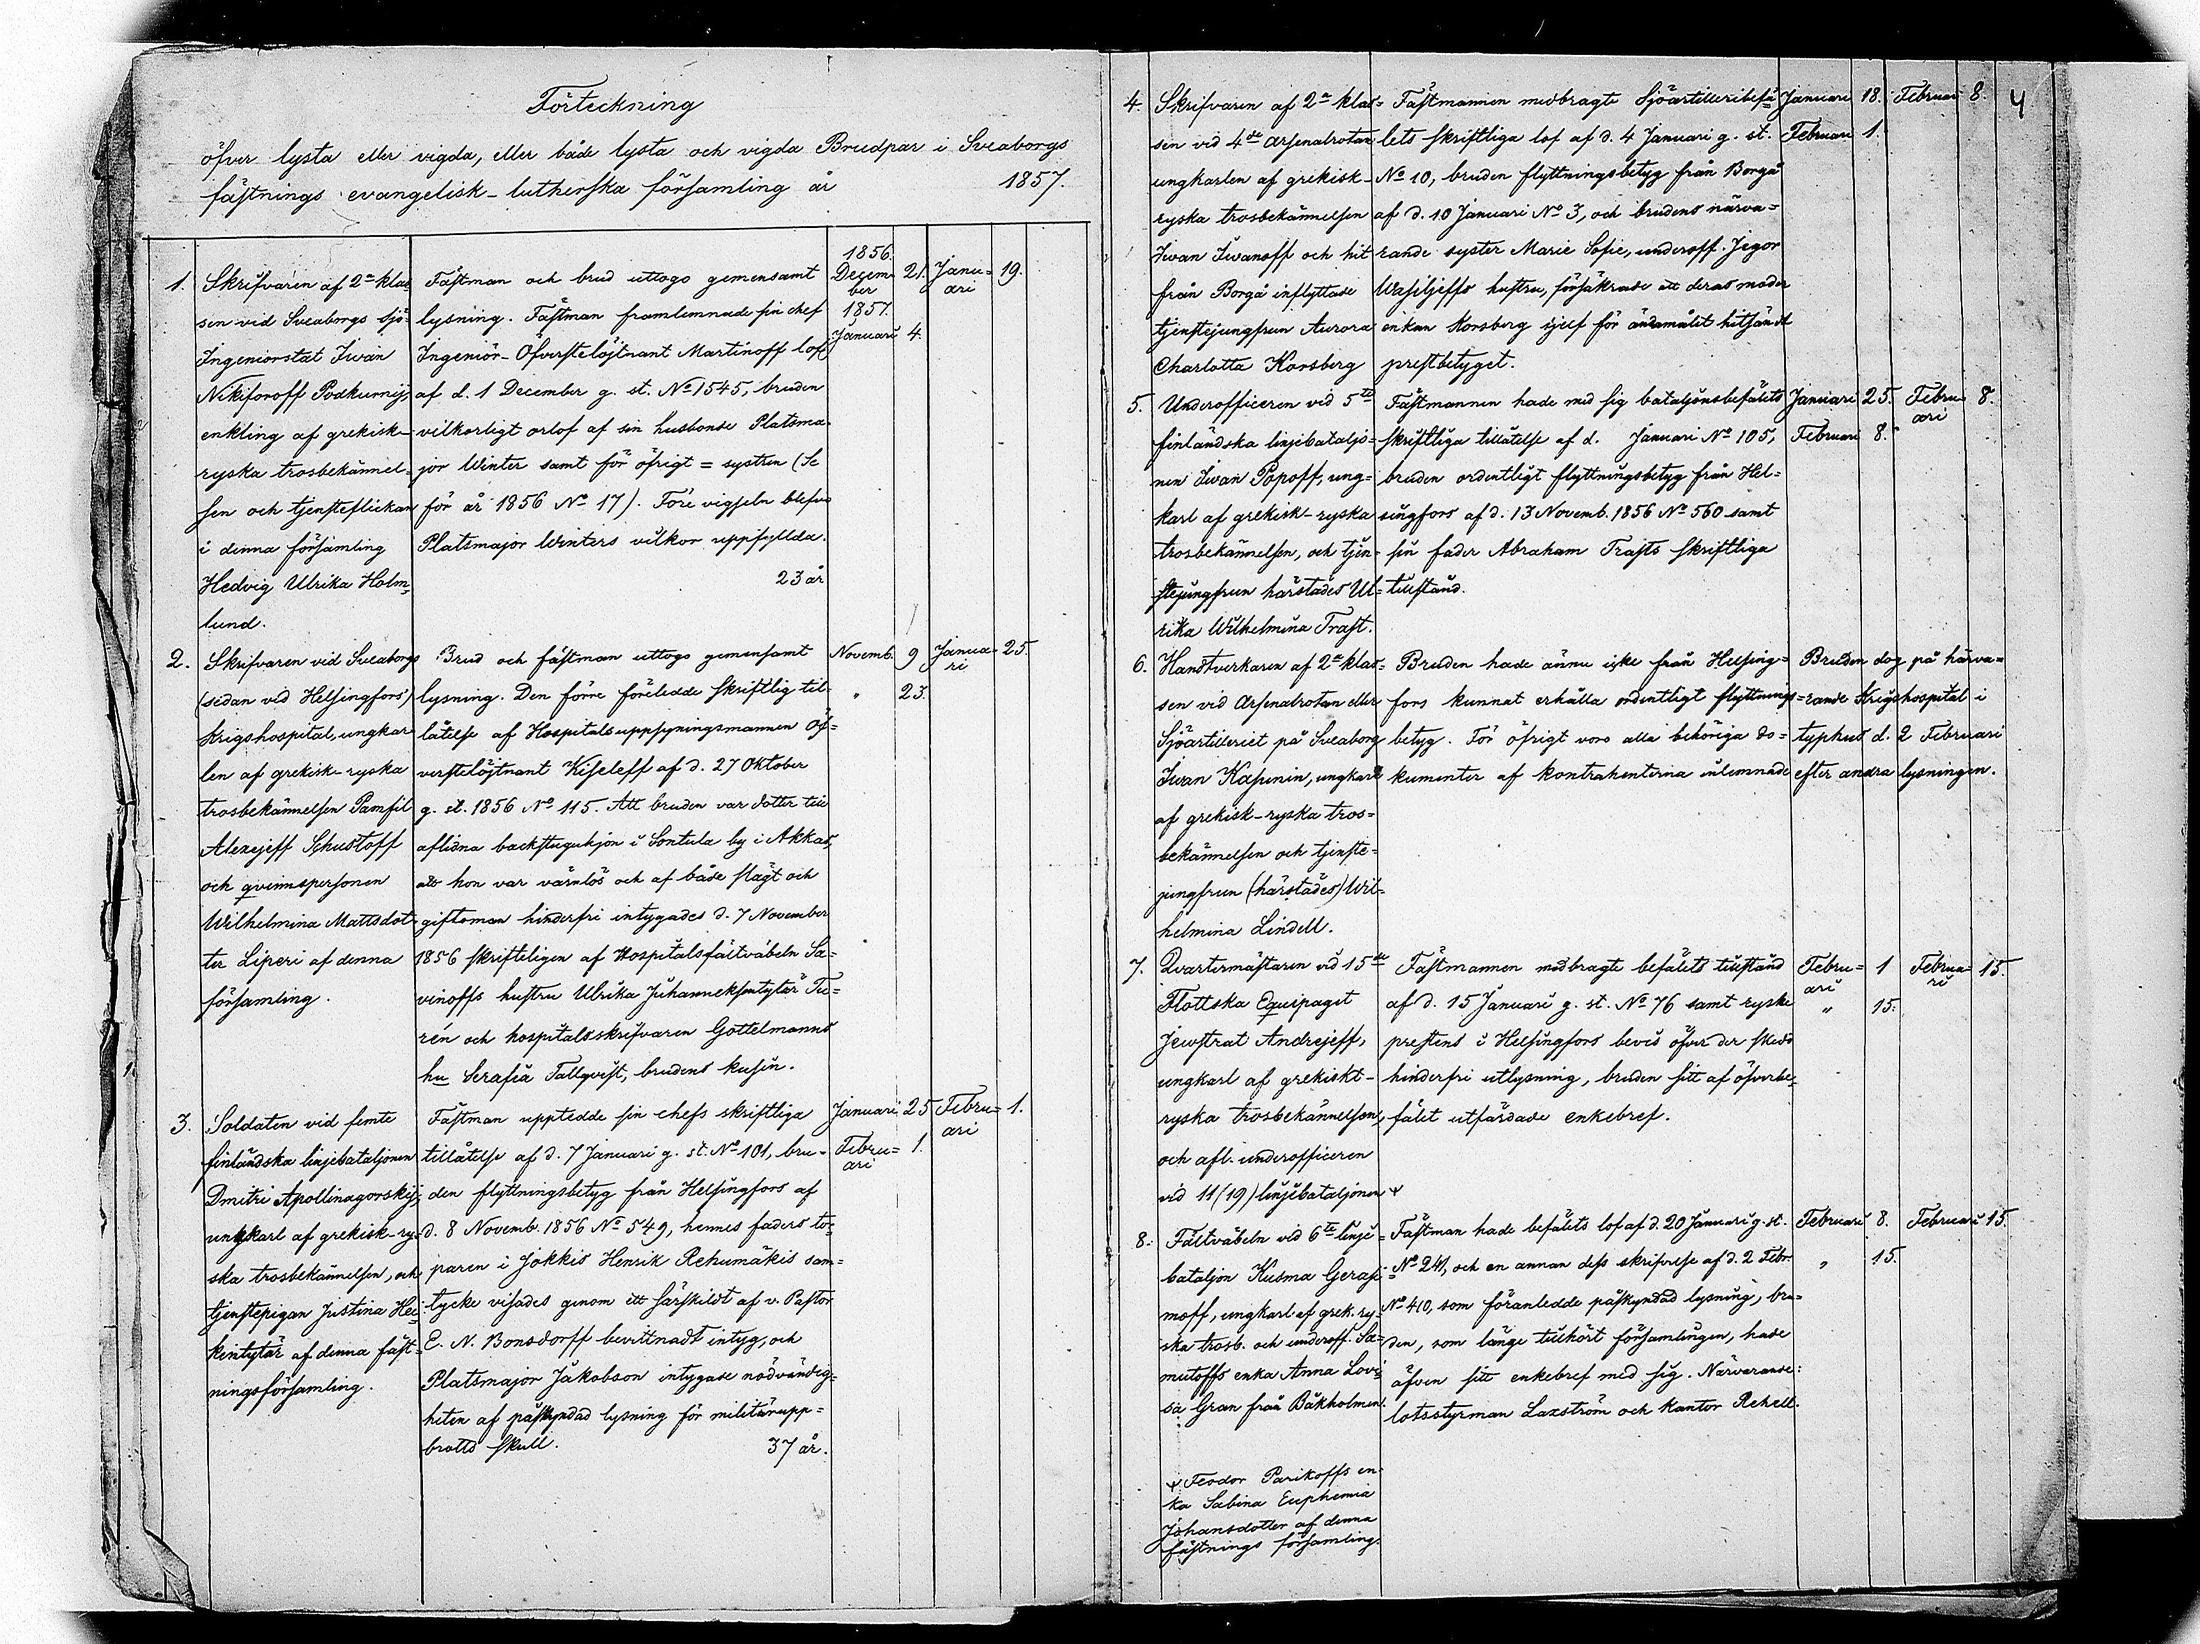 Förteckning
öfver lysta eller vigda, eller både lysta och vigda Brudpar i Sveaborgs
fästnings evangelisk-lutherska församling år 1857.
1.
Skrifvaren af 2a klas
sen vid Sveaborgs sjö-
Ingeniorstat Iwan
Nikiforoff Podkurnij
enkling af grekisk-
ryska trosbekännel-
sen och tjensteflickan
i denna församling
Hedvig Ulrika Holm-
lund.
Fästman och brud uttogo gemensamt
lysning. Fästman framlemnade sin chef
Ingeniör-Öfverstelöjtnant Martinoff lof
af d. 1 December g. st. No 1545, bruden
vilkorligt orlof af sin husbonde Platsma-
jor Winter samt för öfrigt = systren (Se
för år 1856 No 17). Före vigseln blefvo
Platsmajor Winters vilkor uppfyllda.
23 år
1856.
Decem-
ber
21.
1857.
Januari 4.
Janu-
ari
19.
2.
Skrifvaren vid Sveaborgs
(sedan vid Helsingfors)
krigshospital, ungkar
len af grekisk-ryska
trosbekännelsen Pamfil
Alexejeff Schustoff
och qvinnspersonen
Wilhelmina Mattsdot-
ter Liperi af denna
församling.
Brud och fästman uttogo gemensamt
lysning. Den förre företedde skriftlig til-
låtelse af Hospitalsuppsyningsmannen Öf-
verstelöjtnant Kiseleff af d. 27 Oktober
g. st. 1856 No 115. Att bruden var dotter till
aflidna backstugukjon i Sontula by i Akkas,
att hon var värnlös och af både slägt och
giftoman hinderfri intygades d. 7 November
1856 skriftligen af Hospitalsfältväbeln Sa-
vinoffs hustru Ulrika Juhanneksentytär Tu-
rén och hospitalsskrifvaren Gottelmanns
hu Serafia Tallqvist, brudens kusin.
Novemb. 9
" 23.
Janua-
ri
25.
3.
Soldaten vid femte
finländska linjebataljonen
Dmitri Apollinagorskij,
ungkarl af grekisk-ry-
ska trosbekännelsen, och
tjenstepigan Justina Hei-
kintytär af denna fäst-
ningsförsamling.
Fästman upptedde sin chefs skriftliga
tillåtelse af d. 7 Januari g. st. No 101, bru-
den flyttningsbetyg från Helsingfors af
d. 8 Novemb. 1856 No 549, hennes faders tor-
paren i Jokkis Henrik Rehumäkis sam-
tycke visades genom ett särskildt af v. Pastor
E. N. Bonsdorff bevittnadt intyg, och
Platsmajor Jakobson intygade nödvändig-
heten af påskyndad lysning för militärupp-
brotts skull. 37 år.
Januari 25
Febru-
ari
1.
Febru-
ari
1.
4
4.
Skrifvaren af 2a klas-
sen vid 4de Arsenalrotan
ungkarlen af grekisk-
ryska trosbekännelsen
Iwan Iwanoff och hit
från Borgå inflyttade
tjenstejungfrun Aurora
Charlotta Korsberg
Fästmannen medbragte Sjöartilleribefä-
lets skriftliga lof af d. 4 Januari g. st.
No 10, bruden flyttningsbetyg från Borgå
af d. 10 Januari No 3, och brudens närva-
rande syster Marie Sofie, underoff. Jegor
Wasiljeffs hustru, försäkrade att deras moder
enkan Korsberg sjelf för ändamålet hitsändt
prestbetyget.
Januari 18.
Februari 1.
Februari 8.
5.
Underofficeren vid 5te
finländska linjebataljo-
nen Iwan Popoff, ung-
karl af grekisk-ryska
trosbekännelsen, och tjen-
stejungfrun härstädes Ul-
rika Wilhelmina Trast.
Fästmannen hade med sig bataljonsbefälets
skriftliga tillåtelse af d. Januari No 105,
bruden ordentligt flyttningsbetyg från Hel-
singfors af d. 13 Novemb. 1856 No 560 samt
sin fader Abraham Trasts skriftliga
tillstånd.
Januari 25.
Februari 8.
Febru-
ari
8.
6.
Handtverkaren af 2a klas-
sen vid Arsenalrotan eller
Sjöartilleriet på Sveaborg
Iwan Kapinin, ungkarl
af grekisk-ryska tros-
bekännelsen och tjenste-
jungfrun (härstädes) Wil-
helmina Lindell.
Bruden hade ännu icke från Helsing-
fors kunnat erhålla ordentligt flyttnings-
betyg. För öfrigt voro alla behöriga do-
kumenter af kontrahenterna inlemnade
Bruden dog på härva-
rande Krigshospital i
typhus d. 2 Februari
efter andra lysningen.
7.
Qvartermästaren vid 15de
Flottska Equipaget
Jewstrat Andrejeff,
ungkarl af grekiskt-
ryska trosbekännelsen,
och afl. underofficeren
vid 11 (19) linjebataljonen x
Fästmannen medbragte befälets tillstånd
af d. 15 Januari g. st. No 76 samt ryske
prestens i Helsingfors bevis öfver der skedd
hinderfri utlysning, bruden sitt af öfverbe-
fälet utfärdade enkebref.
Febru-
ari
1
" 15.
Februa-
ri
15.
8.
Fältväbeln vid 6te linje-
bataljon Kusma Gerasi-
moff, ungkarl af grek. ry-
ska trosb. och underoff. Sa-
mutoffs enka Anna Lovi-
sa Gran från Bakholmen.
Fästman hade befälets lof af d. 20 Januari g. st.
No 241, och en annan dess skrifvelse af d. 2 Febr.
No 410, som föranledde påskyndad lysning, bru-
den, som länge tillhört församlingen, hade
äfven sitt enkebref med sig. Närvarande:
lotsstyrman Laxström och kantor Rehell.
Februari 8.
" 15.
Februari 15.
x Feodor Parikoffs en-
ka Sabina Euphemia
Johansdotter af denna
fästnings församling.